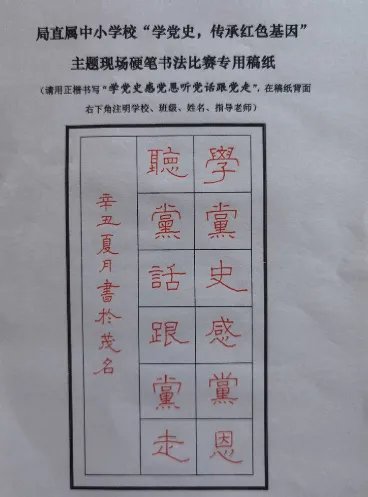 局直属中小学校“学党史，传承红色基因”
主题现场硬笔书法比赛专用稿纸
（请用正楷书写“学党史感党恩听党话跟党走”，在稿纸背面
右下角注明学校、班级、姓名、指导老师）
學黨史感黨恩
聽黨話跟黨走
辛丑夏月書於茂名